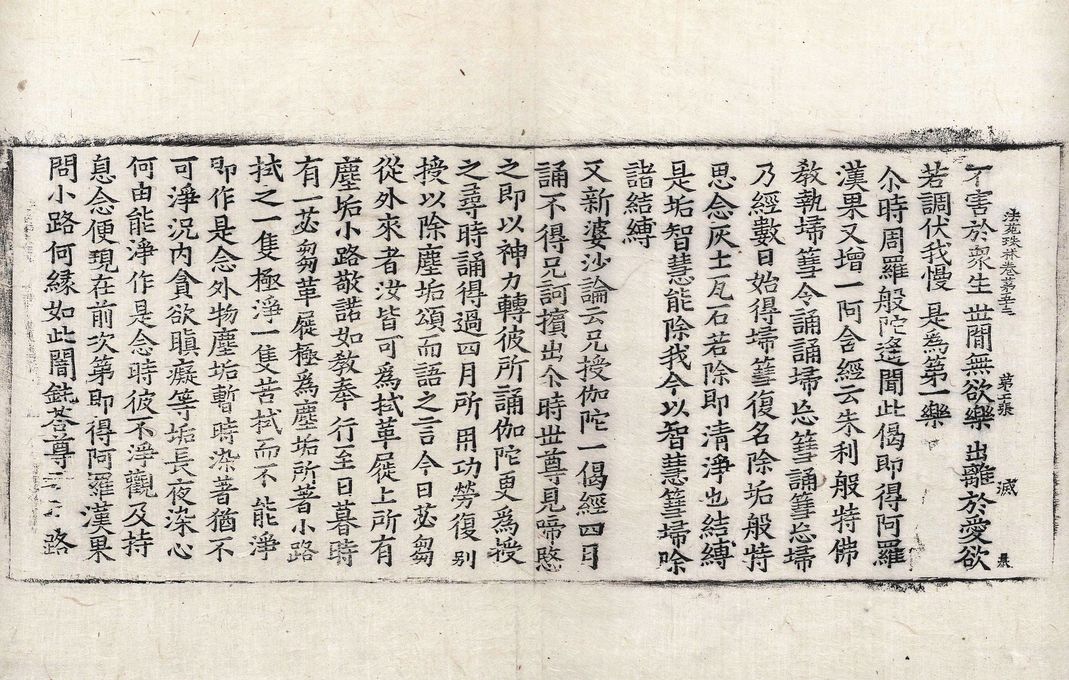 法苑珠林卷第五十三 第十張 滅 晨
不害於衆生 世間無欲樂 出離於愛欲
若調伏我慢 是爲第一樂
尒時周羅般陁遙聞此偈即得阿羅
漢果又增一阿含經云朱利般特佛
教執埽篲令誦誦埽忘篲誦篲忘埽
乃經數日始得埽篲復名除垢般特
思念灰土瓦石若除即清淨也結縛
是垢智慧能除我今以智慧篲埽除
諸結縛
又新婆沙論云兄授伽陀一偈經四月
誦不得兄訶擯出尒時世尊見啼愍
之即以神力轉彼所誦伽陀更爲授
之尋時誦得過四月所用功勞復別
授以除塵垢頌而語之言今日苾芻
從外來者汝皆可爲拭革屣上所有
塵垢小路敬諾如教奉行至日暮時
有一苾芻革屣極爲塵垢所著小路
拭之一隻極淨一隻苦拭而不能淨
即作是念外物塵垢暫時染著猶不
可淨況内貪欲瞋癡等垢長夜染心
何由能淨作是念時彼不淨觀及持
息念便現在前次第即得阿羅漢果
問小路何緣如此闇鈍荅尊 路